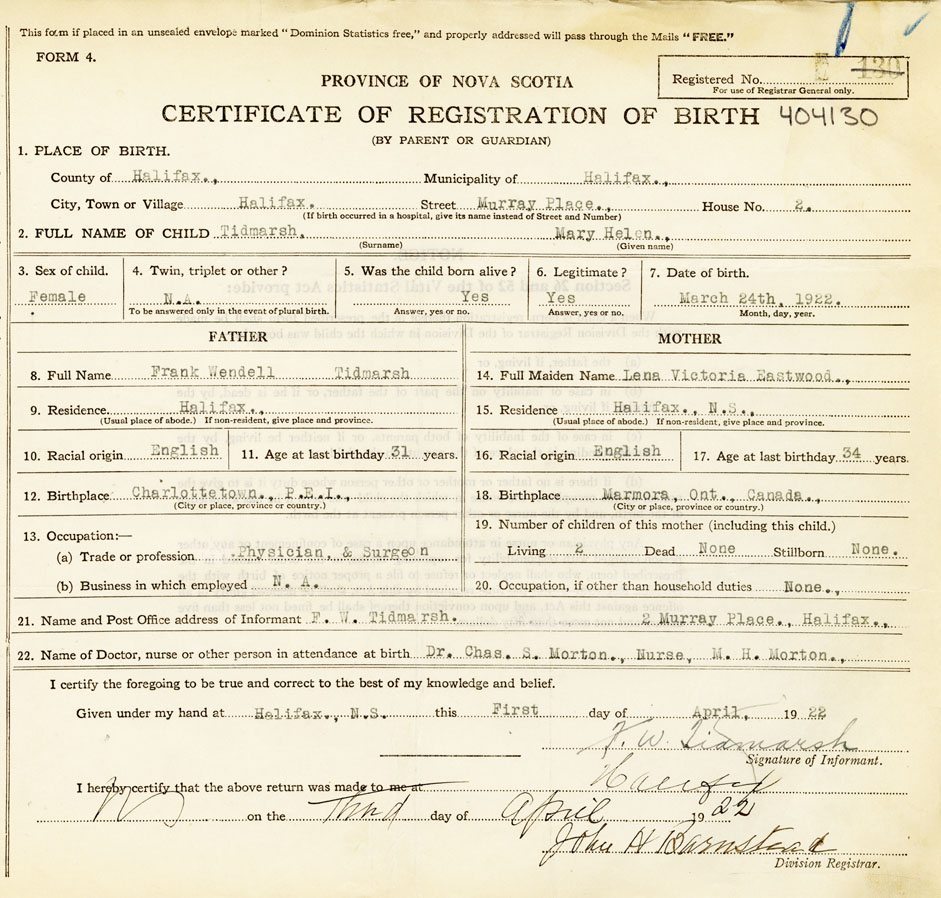 This form if placed in an unsealed envelope marked "Dominion Statistics free," and properly addressed will pass through the Mails "FREE."
FORM 4.
PROVINCE OF NOVA SCOTIA
Registered No. 130
For use of Registrar General only.
CERTIFICATE OF REGISTRATION OF BIRTH 404130
(BY PARENT OR GUARDIAN)
1. PLACE OF BIRTH.
County of Halifax., Municipality of Halifax.,
City, Town or Village Halifax. Street Murray Place., House No. 2.
(If birth occurred in a hospital, give its name instead of Street and Number)
2. FULL NAME OF CHILD Tidmarsh. Mary Helen.,
(Surname) (Given name)
3. Sex of child. 4. Twin, triplet or other? 5. Was the child born alive? 6. Legitimate? 7. Date of birth.
Female N.A. Yes Yes March 24th, 1922.
To be answered only in the event of plural birth. Answer, yes or no. Answer, yes or no. Month, day, year.
FATHER
8. Full Name Frank Wendell Tidmarsh
9. Residence. Halifax.,
(Usual place of abode.) If non-resident, give place and province.
10. Racial origin English 11. Age at last birthday 31 years.
12. Birthplace Charlottetown., P.E.I.,
(City or place, province or country.)
13. Occupation:—
(a) Trade or profession .Physician, & Surgeon
(b) Business in which employed N. A.
MOTHER
14. Full Maiden Name Lena Victoria Eastwood.,
15. Residence Halifax., N.S.,
(Usual place of abode.) If non-resident, give place and province.
16. Racial origin English 17. Age at last birthday 34 years.
18. Birthplace Marmora, Ont., Canada.,
(City or place, province or country.)
19. Number of children of this mother (including this child.)
Living 2 Dead None Stillborn None.
20. Occupation, if other than household duties None.,
21. Name and Post Office address of Informant F. W. Tidmarsh. 2 Murray Place., Halifax.,
22. Name of Doctor, nurse or other person in attendance at birth Dr. Chas. S. Morton., Nurse, M. H. Morton.,
I certify the foregoing to be true and correct to the best of my knowledge and belief.
Given under my hand at Halifax., N.S. this First day of April, 1922
F. W. Tidmarsh
Signature of Informant.
I hereby certify that the above return was made to me at Halifax
NS on the Third day of April 1922
John H Barnstead
Division Registrar.